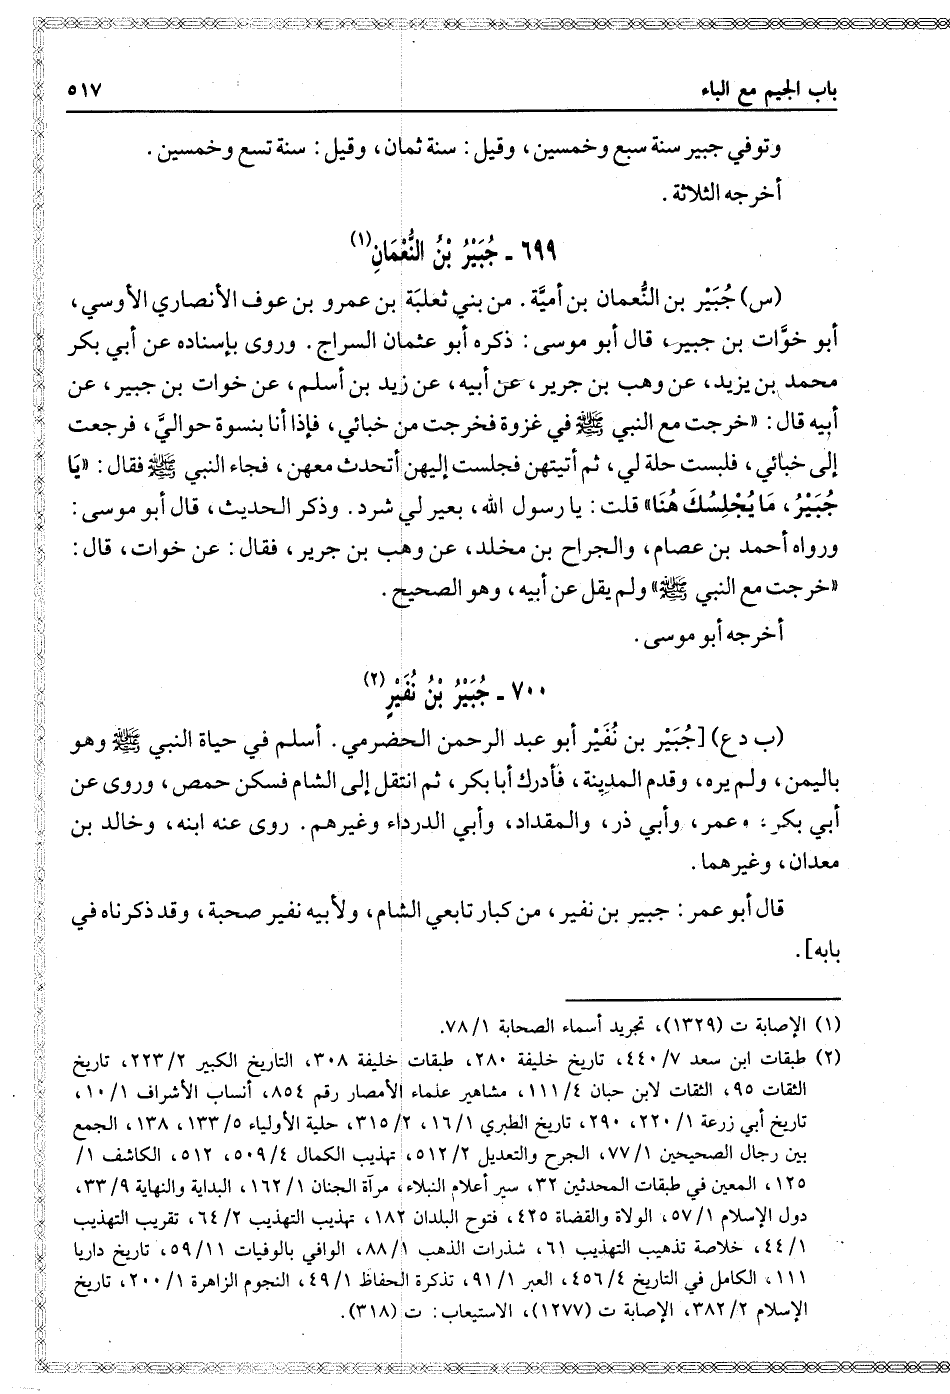 باب الجيم مع الباء ٥١٧
وتوفي جبير سنة سبع وخمسين، وقيل: سنة ثمان، وقيل: سنة تسع وخمسين.
أخرجه الثلاثة.
٦٩٩ - جُبَيْرُ بْنُ النُّعْمَانِ(١)
(س) جُبَيْر بن النُّعمان بن أميَّة. من بني ثعلبَة بن عمرو بن عوف الأنصاري الأوسي،
أبو خوَّات بن جبير، قال أبو موسى: ذكره أبو عثمان السراج. وروى بإسناده عن أبي بكر
محمد بن يزيد، عن وهب بن جرير، عن أبيه، عن زيد بن أسلم، عن خوات بن جبير، عن
أبيه قال: «خرجت مع النبي ﷺ في غزوة فخرجت من خبائي، فإذا أنا بنسوة حواليَّ، فرجعت
إلى خبائي، فلبست حلة لي، ثم أتيتهن فجلست إليهن أتحدث معهن، فجاء النبي ﷺ فقال: «يَا
جُبَيْرُ، مَا يُجْلِسُكَ هُنَا» قلت: يا رسول الله، بعير لي شرد. وذكر الحديث، قال أبو موسى:
ورواه أحمد بن عصام، والجراح بن مخلد، عن وهب بن جرير، فقال: عن خوات، قال:
«خرجت مع النبي ﷺ» ولم يقل عن أبيه، وهو الصحيح.
أخرجه أبو موسى.
٧٠٠ - جُبَيْرُ بْنُ نُفَيْرٍ(٢)
(ب د ع) [جُبَيْر بن نُفَيْر أبو عبد الرحمن الحضرمي. أسلم في حياة النبي ﷺ وهو
باليمن، ولم يره، وقدم المدينة، فأدرك أبا بكر، ثم انتقل إلى الشام فسكن حمص، وروى عن
أبي بكر، وعمر، وأبي ذر، والمقداد، وأبي الدرداء وغيرهم. روى عنه ابنه، وخالد بن
معدان، وغيرهما.
قال أبو عمر: جبير بن نفير، من كبار تابعي الشام، ولأبيه نفير صحبة، وقد ذكرناه في
بابه].
(١) الإصابة ت (١٣٢٩)، تجريد أسماء الصحابة ٧٨/١.
(٢) طبقات ابن سعد ٤٤٠/٧، تاريخ خليفة ٢٨٠، طبقات خليفة ٣٠٨، التاريخ الكبير ٢٢٣/٢، تاريخ
الثقات ٩٥، الثقات لابن حبان ١١١/٤، مشاهير علماء الأمصار رقم ٨٥٤، أنساب الأشراف ١٠/١،
تاريخ أبي زرعة ٢٢٠/١، ٢٩٠، تاريخ الطبري ١٦/١، ٣١٥/٢، حلية الأولياء ١٣٣/٥، ١٣٨، الجمع
بين رجال الصحيحين ٧٧/١، الجرح والتعديل ٥١٢/٢، تهذيب الكمال ٥٠٩/٤، ٥١٢، الكاشف ١/
١٢٥، المعين في طبقات المحدثين ٣٢، سير أعلام النبلاء، مرآة الجنان ١٦٢/١، البداية والنهاية ٣٣/٩،
دول الإسلام ٥٧/١، الولاة والقضاة ٤٢٥، فتوح البلدان ١٨٢، تهذيب التهذيب ٦٤/٢، تقريب التهذيب
٤٤/١، خلاصة تذهيب التهذيب ٦١، شذرات الذهب ٨٨/١، الوافي بالوفيات ٥٩/١١، تاريخ داريا
١١١، الكامل في التاريخ ٤٥٦/٤، العبر ٩١/١، تذكرة الحفاظ ٤٩/١، النجوم الزاهرة ٢٠٠/١، تاريخ
الإسلام ٣٨٢/٢، الإصابة ت (١٢٧٧)، الاستيعاب: ت (٣١٨).